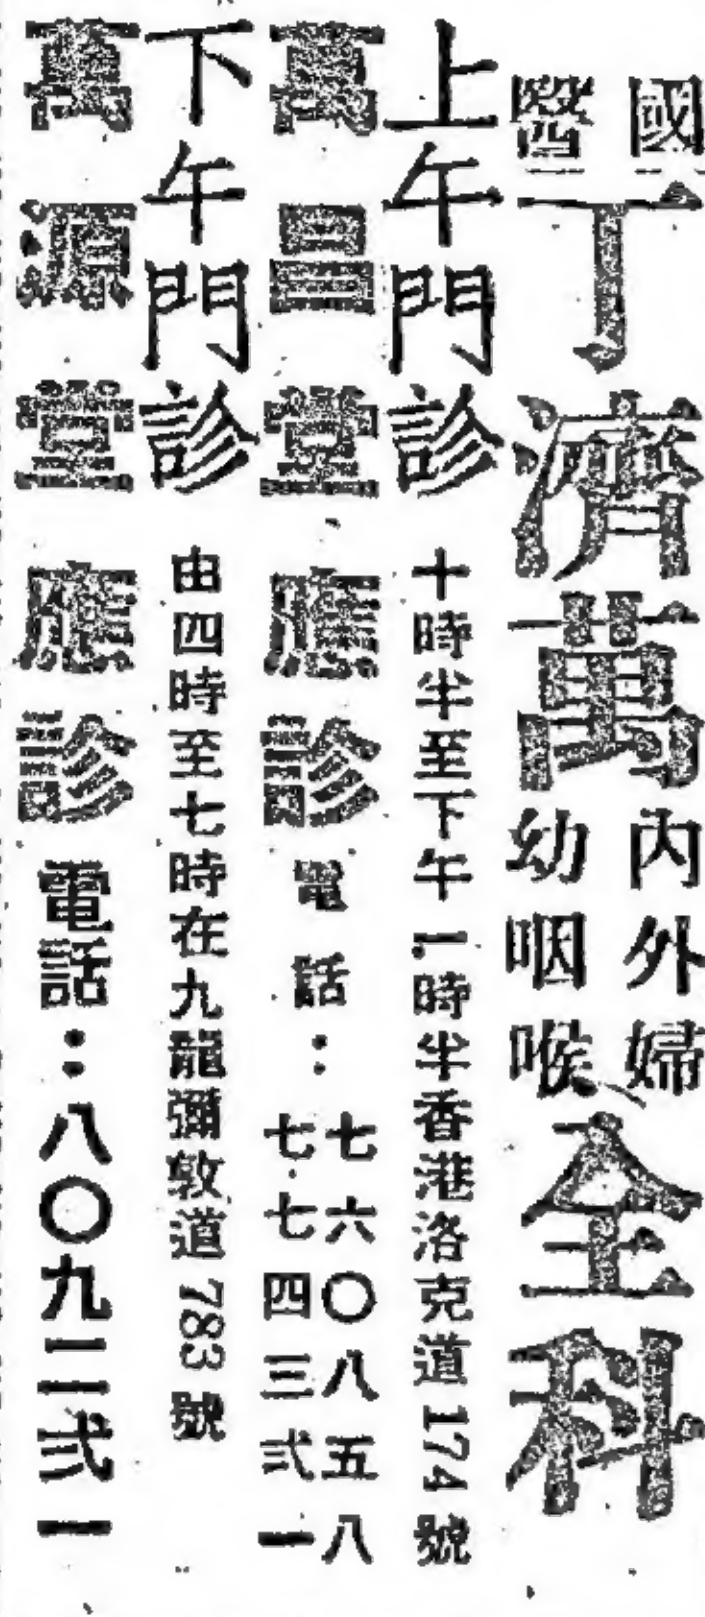 國醫丁濟萬內外婦幼咽喉全科
上午門診 十時半至下午1時半香港洛克道174號
萬昌堂應診 電話：七六〇八五八
七七四三弍一
下午門診 由四時至七時在九龍彌敦道783號
萬源堂應診 電話：八〇九二弍一